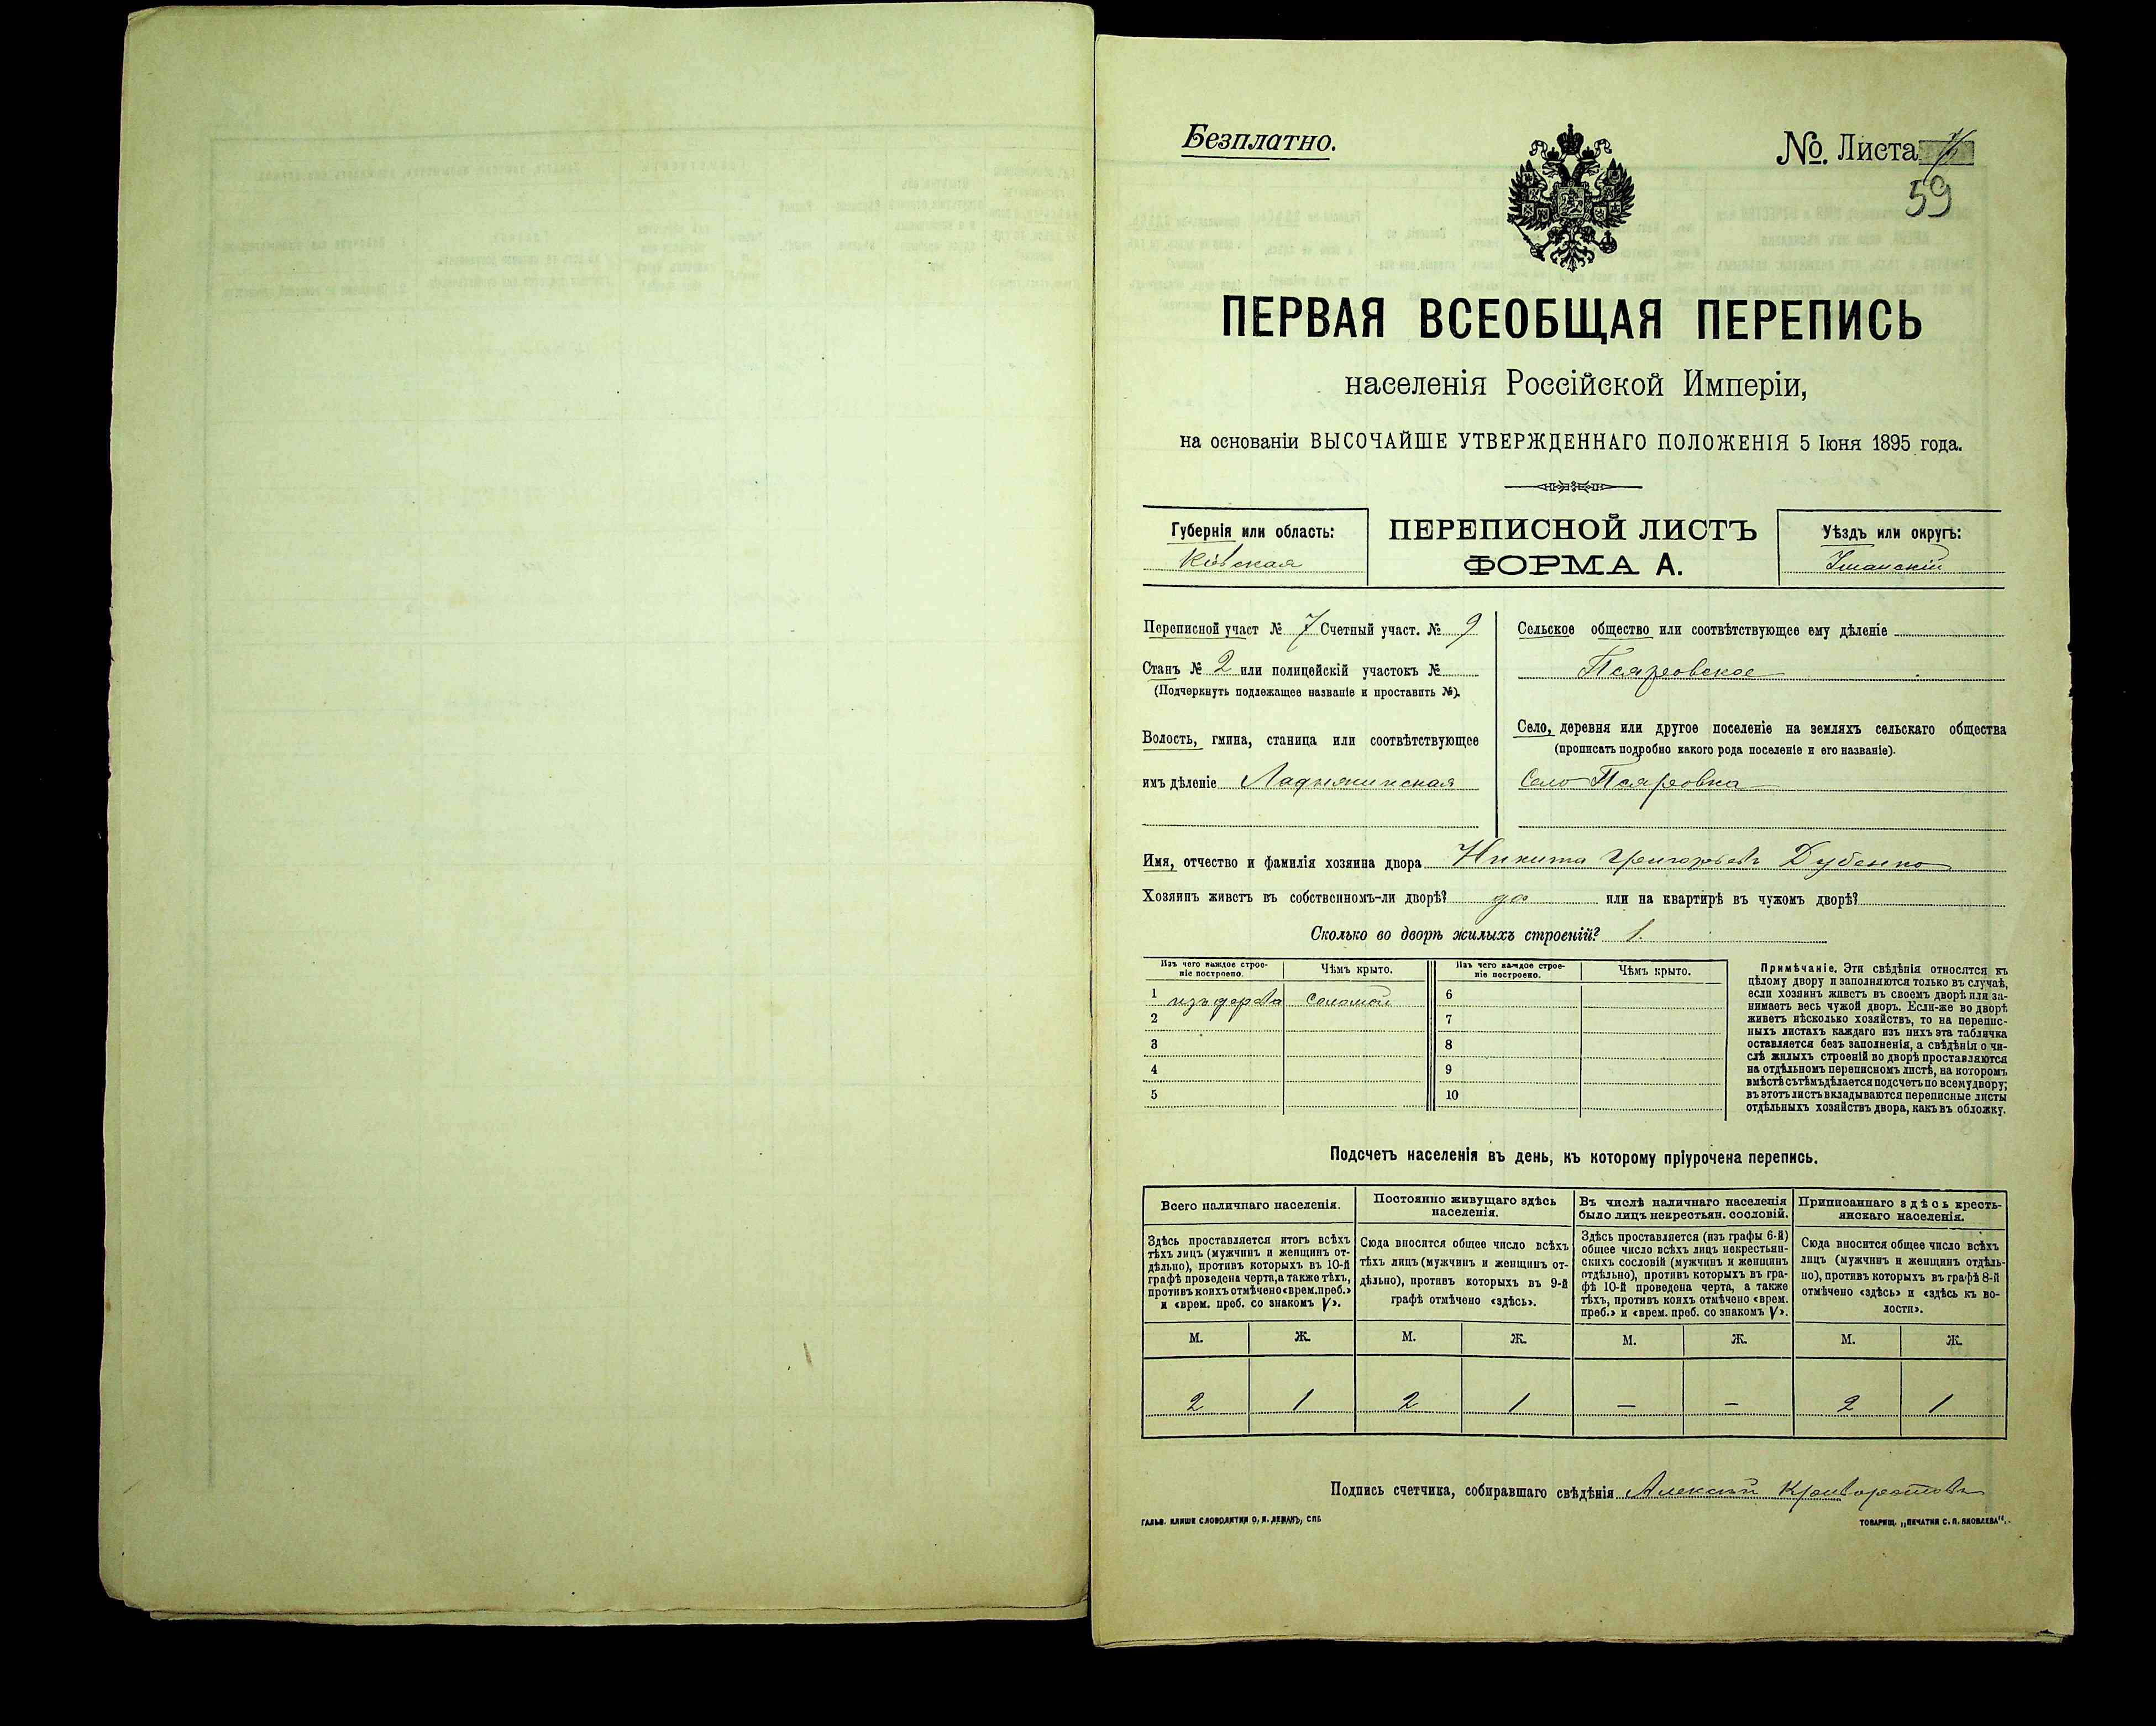 Безплатно.
№. Листа
59
ПЕРВАЯ ВСЕОБЩАЯ ПЕРЕПИСЬ
населенія Россійской Имперіи,
на основаніи ВЫСОЧАЙШЕ УТВЕРЖДЕННАГО ПОЛОЖЕНІЯ 5 Іюня 1895 года.
Губернія или область:
Кіевская
ПЕРЕПИСНОЙ ЛИСТЪ
ФОРМА А.
Уѣздъ или округъ:
Уманскій
Переписной участ № 7 Счетный участ. № 9
Станъ № 2 или полицейскій участокъ №
(Подчеркнуть подлежащее названіе и проставить №).
Волость, гмина, станица или соотвѣтствующее
имъ дѣленіе Ладыжинская
Сельское общество или соотвѣтствующее ему дѣленіе
Псяровское
Село, деревня или другое поселеніе на земляхъ сельскаго общества
(прописать подробно какого рода поселеніе и его названіе).
Село Псяровка
Имя, отчество и фамилія хозяина двора Никита Григорьевъ Дубенко
Хозяинъ живетъ въ собственномъ-ли дворѣ? да или на квартирѣ въ чужомъ дворѣ?
Сколько во дворѣ жилыхъ строеній? 1.
Изъ чего каждое строе-
ніе построено.
Чѣмъ крыто.
Изъ чего каждое строе-
ніе построено.
Чѣмъ крыто.
1 изъ дерева соломой 6
2 7
3 8
4 9
5 10
Примѣчаніе. Эти свѣдѣнія относятся къ
цѣлому двору и заполняются только въ случаѣ,
если хозяинъ живетъ въ своемъ дворѣ или за-
нимаетъ весь чужой дворъ. Если-же во дворѣ
живетъ нѣсколько хозяйствъ, то на перепис-
ныхъ листахъ каждаго изъ нихъ эта табличка
оставляется безъ заполненія, а свѣдѣнія о чи-
слѣ жилыхъ строеній во дворѣ проставляются
на отдѣльномъ переписномъ листѣ, на которомъ
вмѣстѣ съ тѣмъ дѣлается подсчетъ по всему двору;
въ этотъ листъ вкладываются переписные листы
отдѣльныхъ хозяйствъ двора, какъ въ обложку.
Подсчетъ населенія въ день, къ которому пріурочена перепись.
Всего наличнаго населенія.
Здѣсь проставляется итогъ всѣхъ
тѣхъ лицъ (мужчинъ и женщинъ от-
дѣльно), противъ которыхъ въ 10-й
графѣ проведена черта, а также тѣхъ,
противъ коихъ отмѣчено «врем. преб.»
и «врем. преб. со знакомъ V».
Постоянно живущаго здѣсь
населенія.
Сюда вносится общее число всѣхъ
тѣхъ лицъ (мужчинъ и женщинъ от-
дѣльно), противъ которыхъ въ 9-й
графѣ отмѣчено «здѣсь».
Въ числѣ наличнаго населенія
было лицъ некрестьян. сословій.
Здѣсь проставляется (изъ графы 6-й)
общее число всѣхъ лицъ некрестьян-
скихъ сословій (мужчинъ и женщинъ
отдѣльно), противъ которыхъ въ гра-
фѣ 10-й проведена черта, а также
тѣхъ, противъ коихъ отмѣчено «врем.
преб.» и «врем. преб. со знакомъ V».
Приписаннаго здѣсь кресть-
янскаго населенія.
Сюда вносится общее число всѣхъ
лицъ (мужчинъ и женщинъ отдѣль-
но), противъ которыхъ въ графѣ 8-й
отмѣчено «здѣсь» и «здѣсь къ во-
лости».
М. Ж. М. Ж. М. Ж. М. Ж.
2 1 2 1 — — 2 1
Подпись счетчика, собиравшаго свѣдѣнія Алексѣй Криворотовъ
ГАЛЬВ. КЛИШЕ СЛОВОЛИТНИ О. И. ЛЕМАНЪ, СПБ.
ТОВАРИЩ. „ПЕЧАТНЯ С. П. ЯКОВЛЕВА".